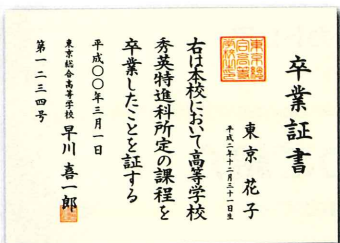 卒業証書
東京花子
平成二年十二月三十一日生
右は本校において高等学校
秀英特進科所定の課程を
卒業したことを証する
平成○○年三月一日
東京総合高等学校 早川喜一郎
第一二三四号